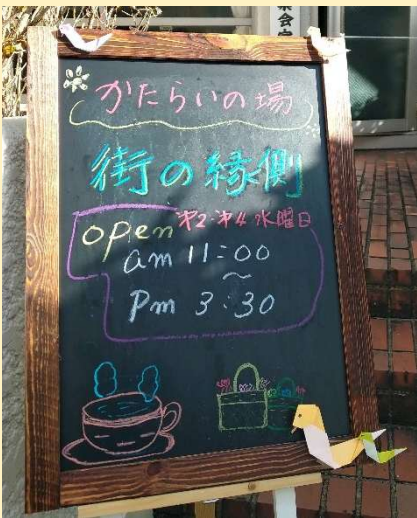 かたらいの場
街の縁側
open 第2・第4 水曜日
am 11:00
～
pm 3:30